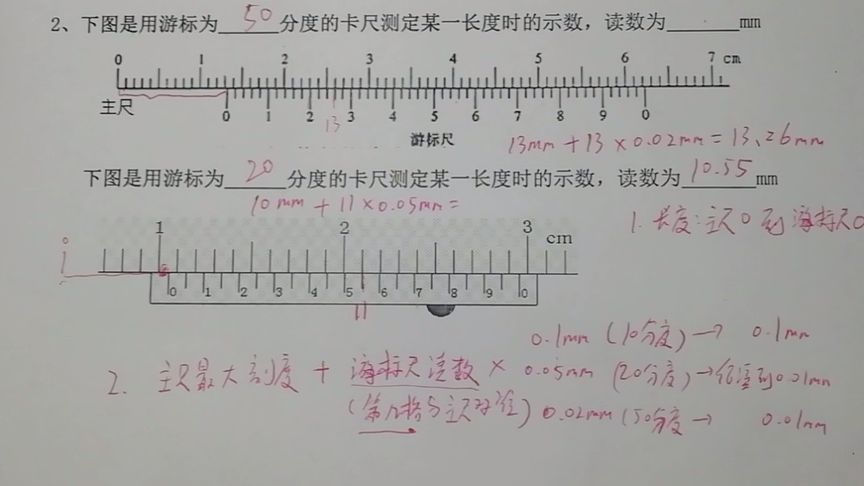 2、下图是用游标为 50 分度的卡尺测定某一长度时的示数，读数为 mm
0 1 2 3 4 5 6 7 cm
主尺
0 1 2 3 4 5 6 7 8 9 0
13
游标尺
13mm + 13 × 0.02mm = 13.26mm
下图是用游标为 20 分度的卡尺测定某一长度时的示数，读数为 10.55 mm
10 mm + 11 × 0.05mm =
1. 长度：主尺0到游标尺0
0 1 2 3 cm
0 1 2 3 4 5 6 7 8 9 0
11
0.1mm (10分度) → 0.1mm
2. 主尺最大刻度 + 游标尺读数 × 0.05mm (20分度) → 估读到0.01mm
(第几格与主尺对准) 0.02mm (50分度 → 0.01mm